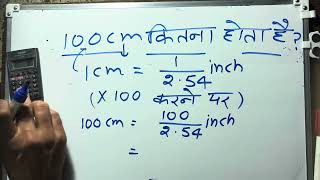 100cm कितना होता है?
1cm = 1/2.54 inch
(X 100 करने पर)
100cm = 100/2.54 inch
=